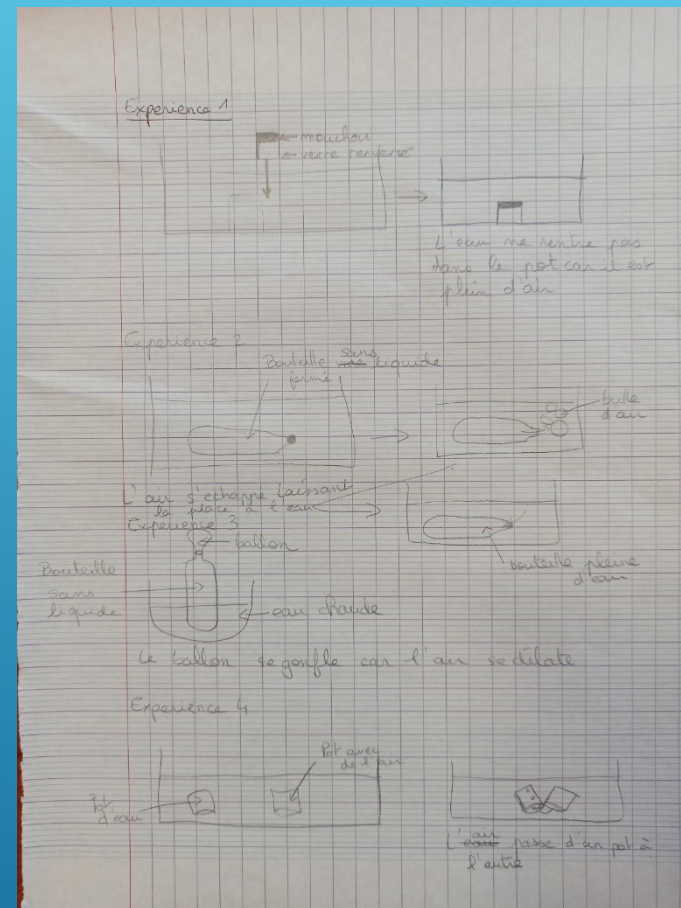 Experience 1
mouchoir
verre renversé
L'eau ne rentre pas
dans le pot car il est
plein d'air
Experience 2
Bouteille sans liquide
fermé
bulle
d'air
L'air s'echappe laissant
la place à l'eau
bouteille pleine
d'eau
Experience 3
ballon
Bouteille
sans
liquide
eau chaude
Le ballon se gonfle car l'air se dilate
Experience 4
Pot avec
de l'air
Pot
d'eau
L'air passe d'un pot à
l'autre